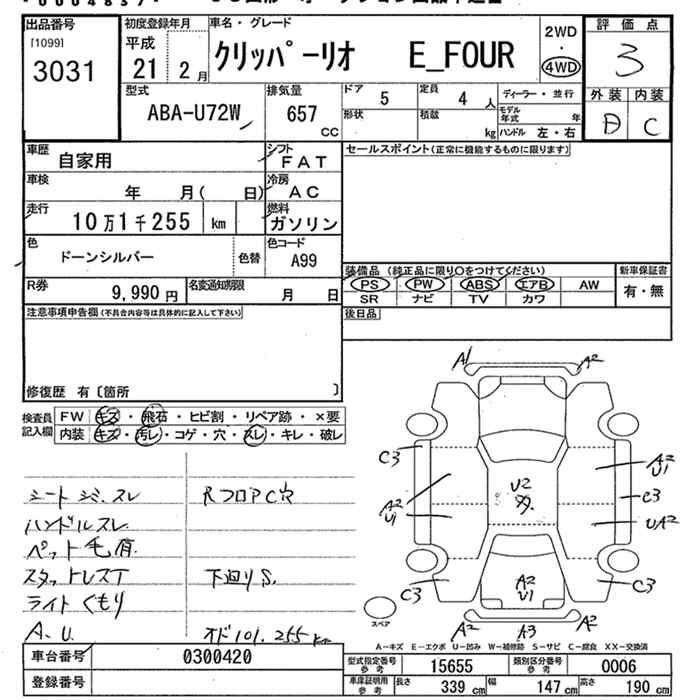 出品番号
[1099]
3031
初度登録年月
平成
21 2月
車名・グレード
クリッパーリオ E_FOUR
2WD
・
4WD
評価点
3
外装 内装
D C
型式
ABA-U72W
排気量
657
CC
ドア 5
定員 4 人
ディーラー・並行
形状
積載 kg
モデル年式 年
ハンドル 左・右
車歴 自家用
シフト FAT
セールスポイント(正常に機能するものに限ります)
車検 年 月( 日)
冷房 AC
走行 10万1千255 km
燃料 ガソリン
色 ドーンシルバー
色替
色コード A99
R券 9,990 円
名変通知期限 月 日
装備品 (純正品に限り○をつけてください)
新車保証書
PS PW ABS エアB AW
SR ナビ TV カワ
有・無
後日品
注意事項申告欄(不具合内容等は具体的に記入して下さい)
修復歴 有〔箇所 〕
検査員記入欄
FW キズ・飛石・ヒビ割・リペア跡・×要
内装 キズ・汚レ・コゲ・穴・スレ・キレ・破レ
シート シミ、スレ
RフロアC穴
ハンドルスレ
ペット毛有
スタットレスT
下廻りS.
ライトくもり
A.U.
オド101.255km
A1
A2
C3
A2
U1
U2
A2
U1
C3
A2
U1
UA2
C3
A2
U1
C3
スペア
A2
A3
A2
A-キズ E-エクボ U-凹み W-補修跡 S-サビ C-腐食 XX-交換済
車台番号 0300420
登録番号
型式指定番号参考 15655
類別区分番号参考 0006
車庫証明用参考
長さ 339 cm
幅 147 cm
高さ 190 cm